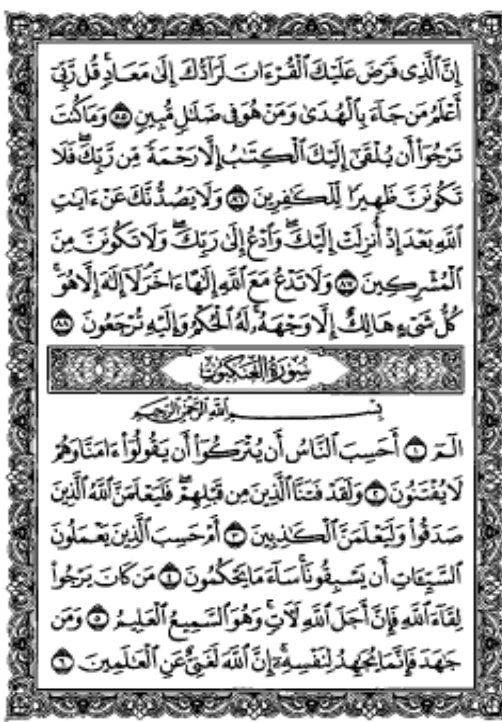 إِنَّ ٱلَّذِى فَرَضَ عَلَيْكَ ٱلْقُرْءَانَ لَرَآدُّكَ إِلَىٰ مَعَادٍۢ ۚ قُل رَّبِّىٓ
أَعْلَمُ مَن جَآءَ بِٱلْهُدَىٰ وَمَنْ هُوَ فِى ضَلَٰلٍۢ مُّبِينٍۢ ٨٥ وَمَا كُنتَ
تَرْجُوٓا۟ أَن يُلْقَىٰٓ إِلَيْكَ ٱلْكِتَٰبُ إِلَّا رَحْمَةًۭ مِّن رَّبِّكَ ۖ فَلَا
تَكُونَنَّ ظَهِيرًۭا لِّلْكَٰفِرِينَ ٨٦ وَلَا يَصُدُّنَّكَ عَنْ ءَايَٰتِ
ٱللَّهِ بَعْدَ إِذْ أُنزِلَتْ إِلَيْكَ ۖ وَٱدْعُ إِلَىٰ رَبِّكَ ۖ وَلَا تَكُونَنَّ مِنَ
ٱلْمُشْرِكِينَ ٨٧ وَلَا تَدْعُ مَعَ ٱللَّهِ إِلَٰهًا ءَاخَرَ ۘ لَآ إِلَٰهَ إِلَّا هُوَ ۚ
كُلُّ شَىْءٍ هَالِكٌ إِلَّا وَجْهَهُۥ ۚ لَهُ ٱلْحُكْمُ وَإِلَيْهِ تُرْجَعُونَ ٨٨
سُورَةُ العَنكَبُوتِ
بِسْمِ ٱللَّهِ ٱلرَّحْمَٰنِ ٱلرَّحِيمِ
الٓمٓ ١ أَحَسِبَ ٱلنَّاسُ أَن يُتْرَكُوٓا۟ أَن يَقُولُوٓا۟ ءَامَنَّا وَهُمْ
لَا يُفْتَنُونَ ٢ وَلَقَدْ فَتَنَّا ٱلَّذِينَ مِن قَبْلِهِمْ ۖ فَلَيَعْلَمَنَّ ٱللَّهُ ٱلَّذِينَ
صَدَقُوا۟ وَلَيَعْلَمَنَّ ٱلْكَٰذِبِينَ ٣ أَمْ حَسِبَ ٱلَّذِينَ يَعْمَلُونَ
ٱلسَّيِّـَٔاتِ أَن يَسْبِقُونَا ۚ سَآءَ مَا يَحْكُمُونَ ٤ مَن كَانَ يَرْجُوا۟
لِقَآءَ ٱللَّهِ فَإِنَّ أَجَلَ ٱللَّهِ لَءَاتٍۢ ۚ وَهُوَ ٱلسَّمِيعُ ٱلْعَلِيمُ ٥ وَمَن
جَٰهَدَ فَإِنَّمَا يُجَٰهِدُ لِنَفْسِهِۦٓ ۚ إِنَّ ٱللَّهَ لَغَنِىٌّ عَنِ ٱلْعَٰلَمِينَ ٦